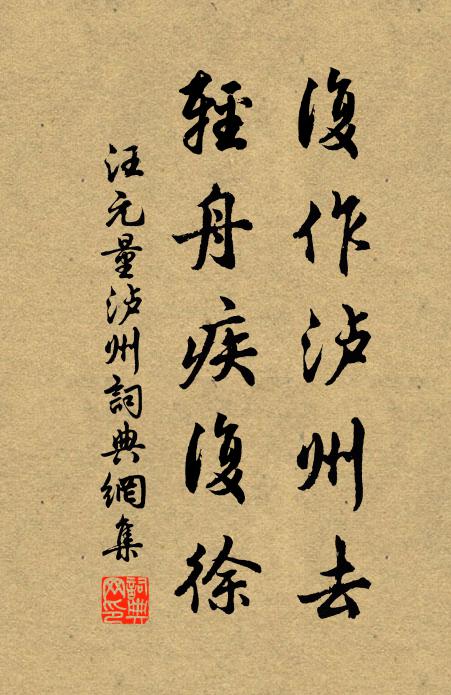 復作泸州去
輕舟疾復徐
汪元量泸州詞典網集
詞典網印